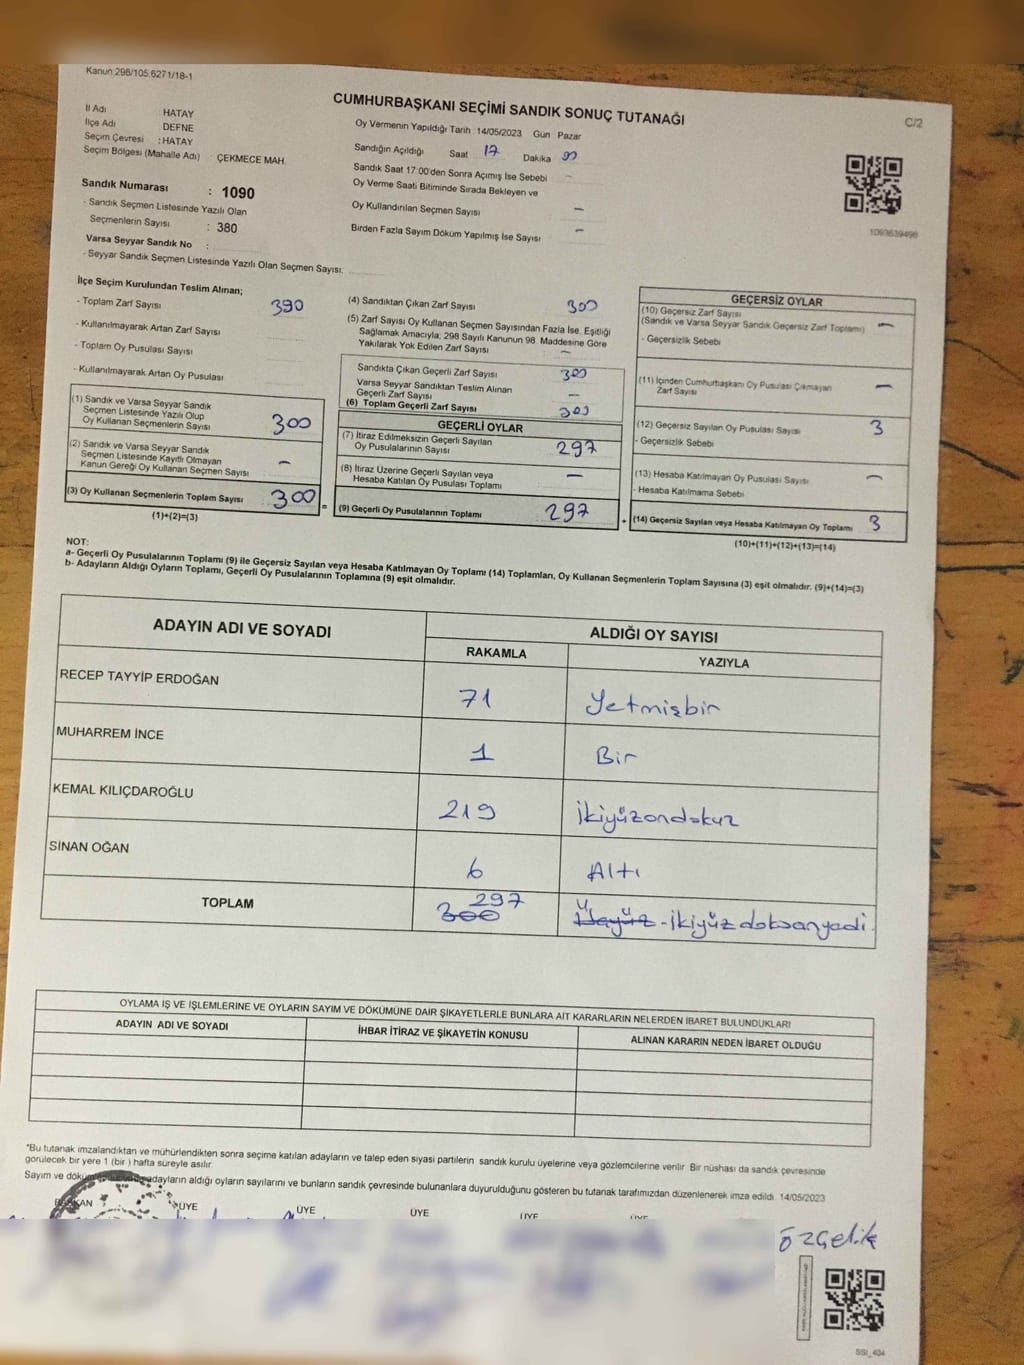 Kanun:298/105:6271/18-1
CUMHURBAŞKANI SEÇİMİ SANDIK SONUÇ TUTANAĞI
C/2
İl Adı HATAY
İlçe Adı DEFNE
Seçim Çevresi : HATAY
Seçim Bölgesi (Mahalle Adı) ÇEKMECE MAH.
Sandık Numarası : 1090
- Sandık Seçmen Listesinde Yazılı Olan
Seçmenlerin Sayısı : 380
Varsa Seyyar Sandık No :
- Seyyar Sandık Seçmen Listesinde Yazılı Olan Seçmen Sayısı:
Oy Vermenin Yapıldığı Tarih 14/05/2023 Gün Pazar
Sandığın Açıldığı Saat 17 Dakika
Sandık Saat 17:00'den Sonra Açımış İse Sebebi -
Oy Verme Saati Bitiminde Sırada Bekleyen ve
Oy Kullandırılan Seçmen Sayısı -
Birden Fazla Sayım Döküm Yapılmış İse Sayısı -
1093639496
İlçe Seçim Kurulundan Teslim Alınan;
- Toplam Zarf Sayısı 390
- Kullanılmayarak Artan Zarf Sayısı
- Toplam Oy Pusulası Sayısı
- Kullanılmayarak Artan Oy Pusulası
(1) Sandık ve Varsa Seyyar Sandık
Seçmen Listesinde Yazılı Olup
Oy Kullanan Seçmenlerin Sayısı 300
(2) Sandık ve Varsa Seyyar Sandık
Seçmen Listesinde Kayıtlı Olmayan
Kanun Gereği Oy Kullanan Seçmen Sayısı -
(3) Oy Kullanan Seçmenlerin Toplam Sayısı 300
(1)+(2)=(3)
(4) Sandıktan Çıkan Zarf Sayısı 300
(5) Zarf Sayısı Oy Kullanan Seçmen Sayısından Fazla İse, Eşitliği
Sağlamak Amacıyla; 298 Sayılı Kanunun 98. Maddesine Göre
Yakılarak Yok Edilen Zarf Sayısı -
Sandıkta Çıkan Geçerli Zarf Sayısı 300
Varsa Seyyar Sandıktan Teslim Alınan
Geçerli Zarf Sayısı -
(6) Toplam Geçerli Zarf Sayısı 300
GEÇERLİ OYLAR
(7) İtiraz Edilmeksizin Geçerli Sayılan
Oy Pusulalarının Sayısı 297
(8) İtiraz Üzerine Geçerli Sayılan veya
Hesaba Katılan Oy Pusulası Toplamı -
= (9) Geçerli Oy Pusulalarının Toplamı 297
GEÇERSİZ OYLAR
(10) Geçersiz Zarf Sayısı -
(Sandık ve Varsa Seyyar Sandık Geçersiz Zarf Toplamı)
- Geçersizlik Sebebi
(11) İçinden Cumhurbaşkanı Oy Pusulası Çıkmayan
Zarf Sayısı -
(12) Geçersiz Sayılan Oy Pusulası Sayısı 3
- Geçersizlik Sebebi
(13) Hesaba Katılmayan Oy Pusulası Sayısı -
- Hesaba Katılmama Sebebi
+ (14) Geçersiz Sayılan veya Hesaba Katılmayan Oy Toplamı 3
(10)+(11)+(12)+(13)=(14)
NOT:
a- Geçerli Oy Pusulalarının Toplamı (9) ile Geçersiz Sayılan veya Hesaba Katılmayan Oy Toplamı (14) Toplamları, Oy Kullanan Seçmenlerin Toplam Sayısına (3) eşit olmalıdır. (9)+(14)=(3)
b- Adayların Aldığı Oyların Toplamı, Geçerli Oy Pusulalarının Toplamına (9) eşit olmalıdır.
ADAYIN ADI VE SOYADI ALDIĞI OY SAYISI
RAKAMLA YAZIYLA
RECEP TAYYİP ERDOĞAN 71 Yetmişbir
MUHARREM İNCE 1 Bir
KEMAL KILIÇDAROĞLU 219 İkiyüzondokuz
SİNAN OĞAN 6 Altı
TOPLAM 300 297 Üçyüz - ikiyüz doksanyedi
OYLAMA İŞ VE İŞLEMLERİNE VE OYLARIN SAYIM VE DÖKÜMÜNE DAİR ŞİKAYETLERLE BUNLARA AİT KARARLARIN NELERDEN İBARET BULUNDUKLARI
ADAYIN ADI VE SOYADI İHBAR İTİRAZ VE ŞİKAYETİN KONUSU ALINAN KARARIN NEDEN İBARET OLDUĞU
*Bu tutanak imzalandıktan ve mühürlendikten sonra seçime katılan adayların ve talep eden siyasi partilerin sandık kurulu üyelerine veya gözlemcilerine verilir. Bir nüshası da sandık çevresinde
görülecek bir yere 1 (bir) hafta süreyle asılır.
Sayım ve döküm adayların aldığı oyların sayılarını ve bunların sandık çevresinde bulunanlara duyurulduğunu gösteren bu tutanak tarafımızdan düzenlenerek imza edildi. 14/05/2023
BAŞKAN ÜYE ÜYE ÜYE ÜYE ÜYE
özçelik
SSI_434